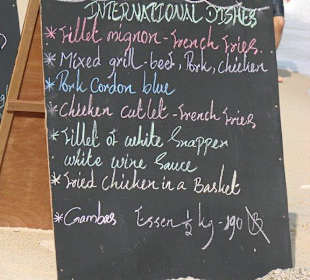 INTERNATIONAL DISHES
* Fillet mignon - French Fries.
* Mixed grill - beef, Pork, Chicken
* Pork Cordon blue
* Chicken Cutlet - French Fries
* Fillet of white Snapper
white wine Sauce
* Fried Chicken in a Basket
* Gambas Essen ½ kg - 190 ฿